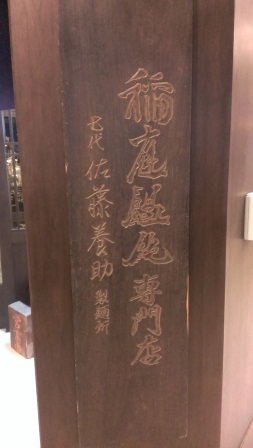 稲庭饂飩専門店
七代佐藤養助製麺所